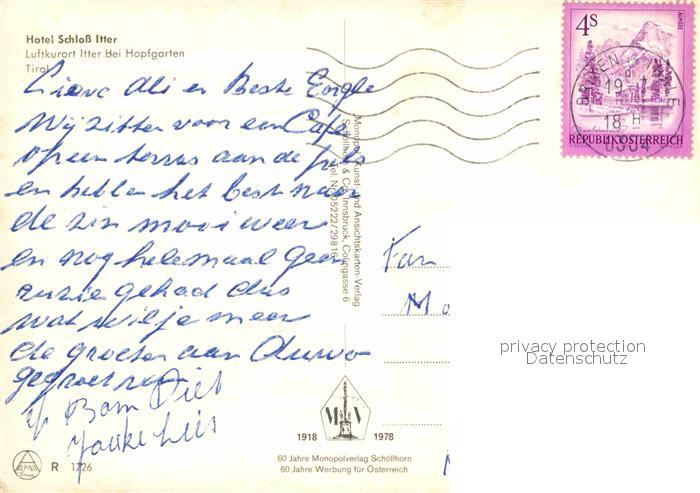 Hotel Schloß Itter
Luftkurort Itter Bei Hopfgarten
Tirol
Ali en Beste
Wij zitten voor een Cafe
op een terras aan de
en hebben het best naar
de zin mooi weer
en nog helemaal geen
ruzie gehad dus
wat wil je meer
de groeten aan
Piet
Monopol Kunst- und Ansichtskarten-Verlag
Schöllhorn & Co. Innsbruck, Colingasse 6
Tel. Nr. 05222/29816
Fam
4S
ALMSEE
REPUBLIK ÖSTERREICH
19
18 H
privacy protection
Datenschutz
M V
1918 1978
60 Jahre Monopolverlag Schöllhorn
60 Jahre Werbung für Österreich
ALPINA
R 1726